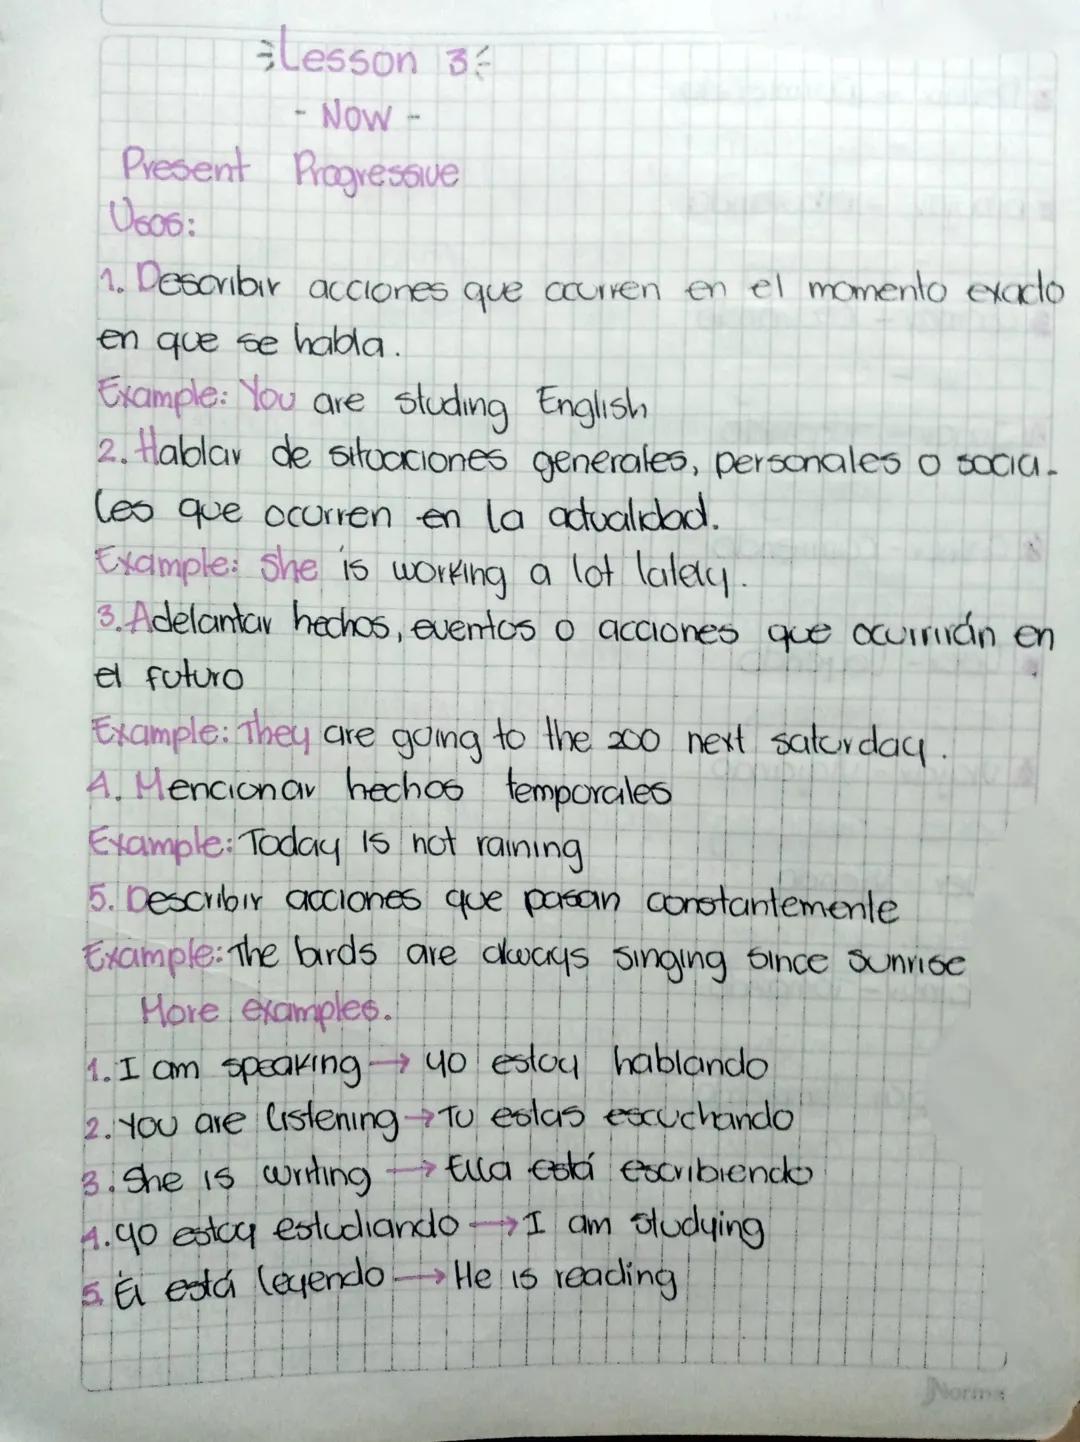 Lesson 3
- Now -
Present Progressive
Usos:
1. Describir acciones que ocurren en el momento exacto
en que se habla.
Example: You are studing English
2. Hablar de situaciones generales, personales o socia-
les que ocurren en la actualidad.
Example: She is working a lot lately.
3. Adelantar hechos, eventos o acciones que ocurrirán en
el futuro
Example: They are going to the zoo next saturday.
4. Mencionar hechos temporales
Example: Today is not raining
5. Describir acciones que pasan constantemente
Example: The birds are always singing since sunrise
More examples.
1. I am speaking → yo estoy hablando
2. You are listening → Tu estas escuchando
3. She is writing → Ella está escribiendo
4. yo estoy estudiando → I am studying
5. Él está leyendo → He is reading
Norma